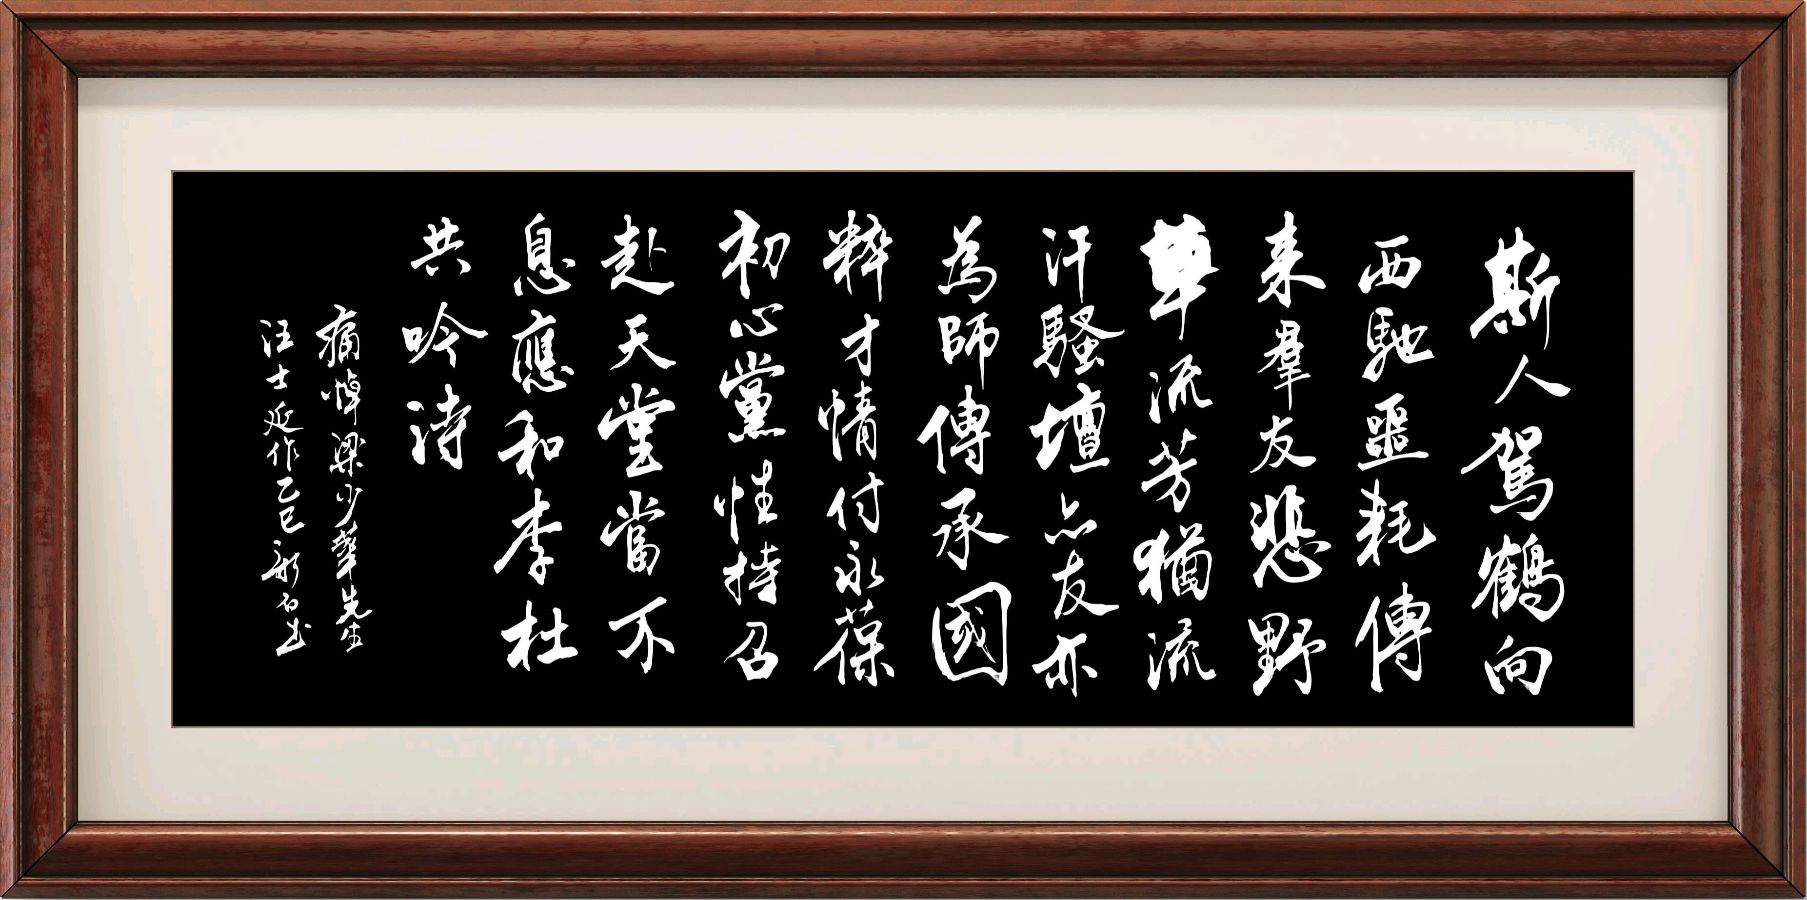 斯人駕鶴向
西馳噩耗傳
来羣友悲野
草流芳猶流
汗騷壇友亦
為師傳承國
粹才情付永葆
初心黨性持召
赴天堂當不
息應和李杜
共吟詩
痛悼梁少華先生
汪士延作乙巳石书